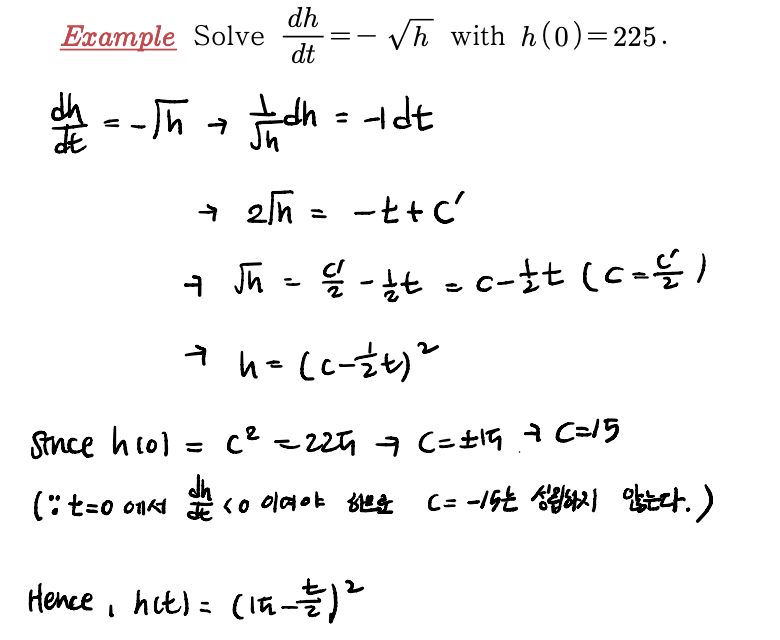 Example Solve dh/dt = - √h with h(0)=225.
dh/dt = -√h → 1/√h dh = -1dt
→ 2√h = -t + C'
→ √h = C'/2 - 1/2 t = C - 1/2 t (C = C'/2)
→ h = (C - 1/2 t)²
Since h(0) = C² = 225 → C = ±15 → C=15
(∵ t=0 에서 dh/dt < 0 이여야 하므로 C = -15는 성립하지 않는다.)
Hence, h(t) = (15 - t/2)²